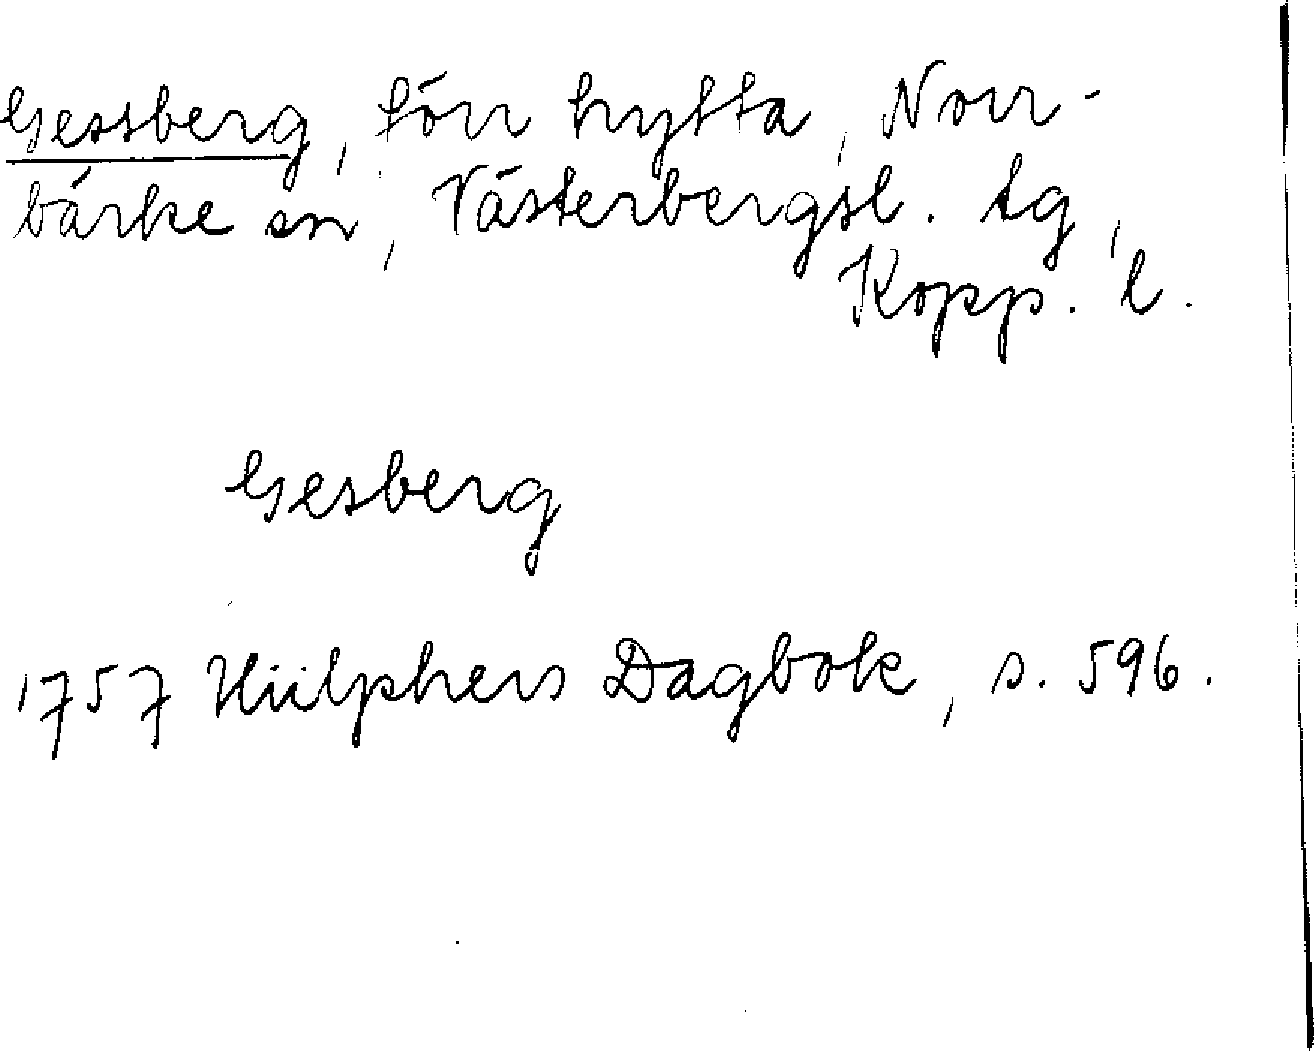 Gessberg, förr hytta, Norr-
bärke sn, Västerbergsl. tg,
Kopp. l.
Gesberg
1757 Hülphers Dagbok, s. 596.